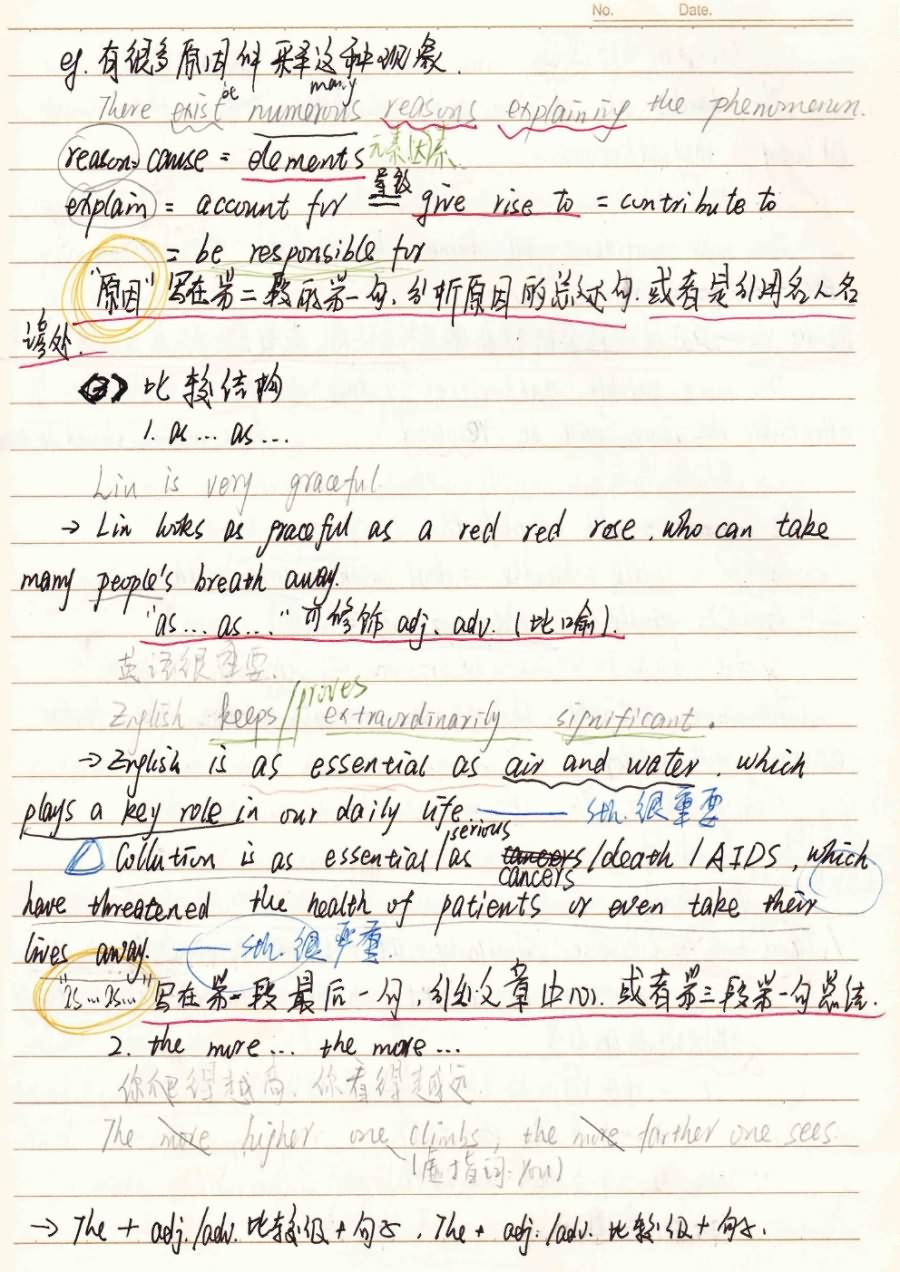 No. Date.
eg. 有很多原因解释这种现象.
be many
There exist numerous reasons explaining the phenomenon.
reason = cause = elements 元素因素
explain = account for 导致 give rise to = contribute to
= be responsible for
"原因"写在第二段的第一句,分析原因的总述句.或者是引用名人名
谚处.
比较结构
1. as ... as ...
Lin is very graceful
→ Lin looks as graceful as a red red rose, who can take
many people's breath away.
"as ... as ..." 可修饰 adj. adv. (比喻).
英语很重要.
English keeps/proves extraordinarily significant.
→ English is as essential as air and water, which
plays a key role in our daily life. —— sth. 很重要
serious
Collution is as essential/as cancers/death/AIDS, which
cancers
have threatened the health of patients or even take their
lives away. —— sth. 很严重
"as...as..." 写在第一段最后一句,引出文章中心.或者第三段第一句总结.
2. the more ... the more ...
你爬得越高,你看得越远.
The more higher one climbs, the more farther one sees.
(虚指词: you)
→ The + adj./adv. 比较级 + 句子, The + adj./adv. 比较级 + 句子.